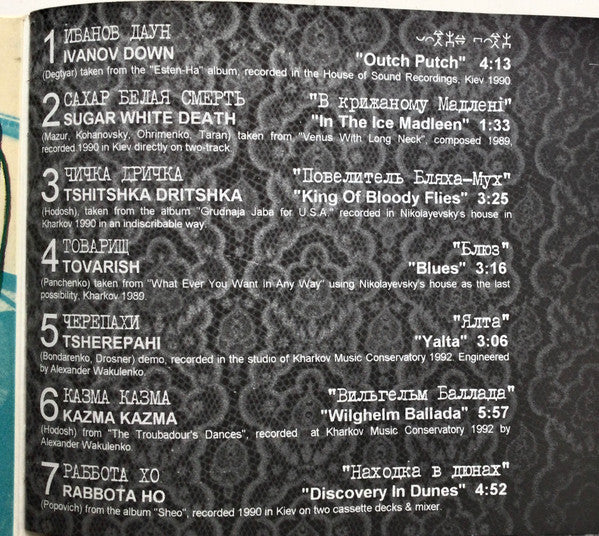 1 ИВАНОВ ДАУН
IVANOV DOWN "Outch Putch" 4:13
(Degtyar) taken from the "Esten-Ha" album, recorded in the House of Sound Recordings, Kiev 1990
2 САХАР БЕЛАЯ СМЕРТЬ "В крижаному Мадлені"
SUGAR WHITE DEATH "In The Ice Madleen" 1:33
(Mazur, Kohanovsky, Ohrimenko, Taran) taken from "Venus With Long Neck", composed 1989,
recorded 1990 in Kiev directly on two-track.
3 ЧИЧКА ДРИЧКА "Повелитель Бляха-Мух"
TSHITSHKA DRITSHKA "King Of Bloody Flies" 3:25
(Hodosh), taken from the album "Grudnaja Jaba for U.S.A." recorded in Nikolayevsky's house in
Kharkov 1990 in an indiscribable way.
4 ТОВАРИЩ "Блюз"
TOVARISH "Blues" 3:16
(Panchenko) taken from "What Ever You Want In Any Way" using Nikolayevsky's house as the last
possibility, Kharkov 1989.
5 ЧЕРЕПАХИ "Ялта"
TSHEREPAHI "Yalta" 3:06
(Bondarenko, Drosner) demo, recorded in the studio of Kharkov Music Conservatory 1992. Engineered
by Alexander Wakulenko.
6 КАЗМА КАЗМА "Вильгельм Баллада"
KAZMA KAZMA "Wilghelm Ballada" 5:57
(Hodosh) from "The Troubadour's Dances", recorded at Kharkov Music Conservatory 1992 by
Alexander Wakulenko
7 РАББОТА ХО "Находка в дюнах"
RABBOTA HO "Discovery In Dunes" 4:52
(Popovich) from the album "Sheo", recorded 1990 in Kiev on two cassette decks & mixer.